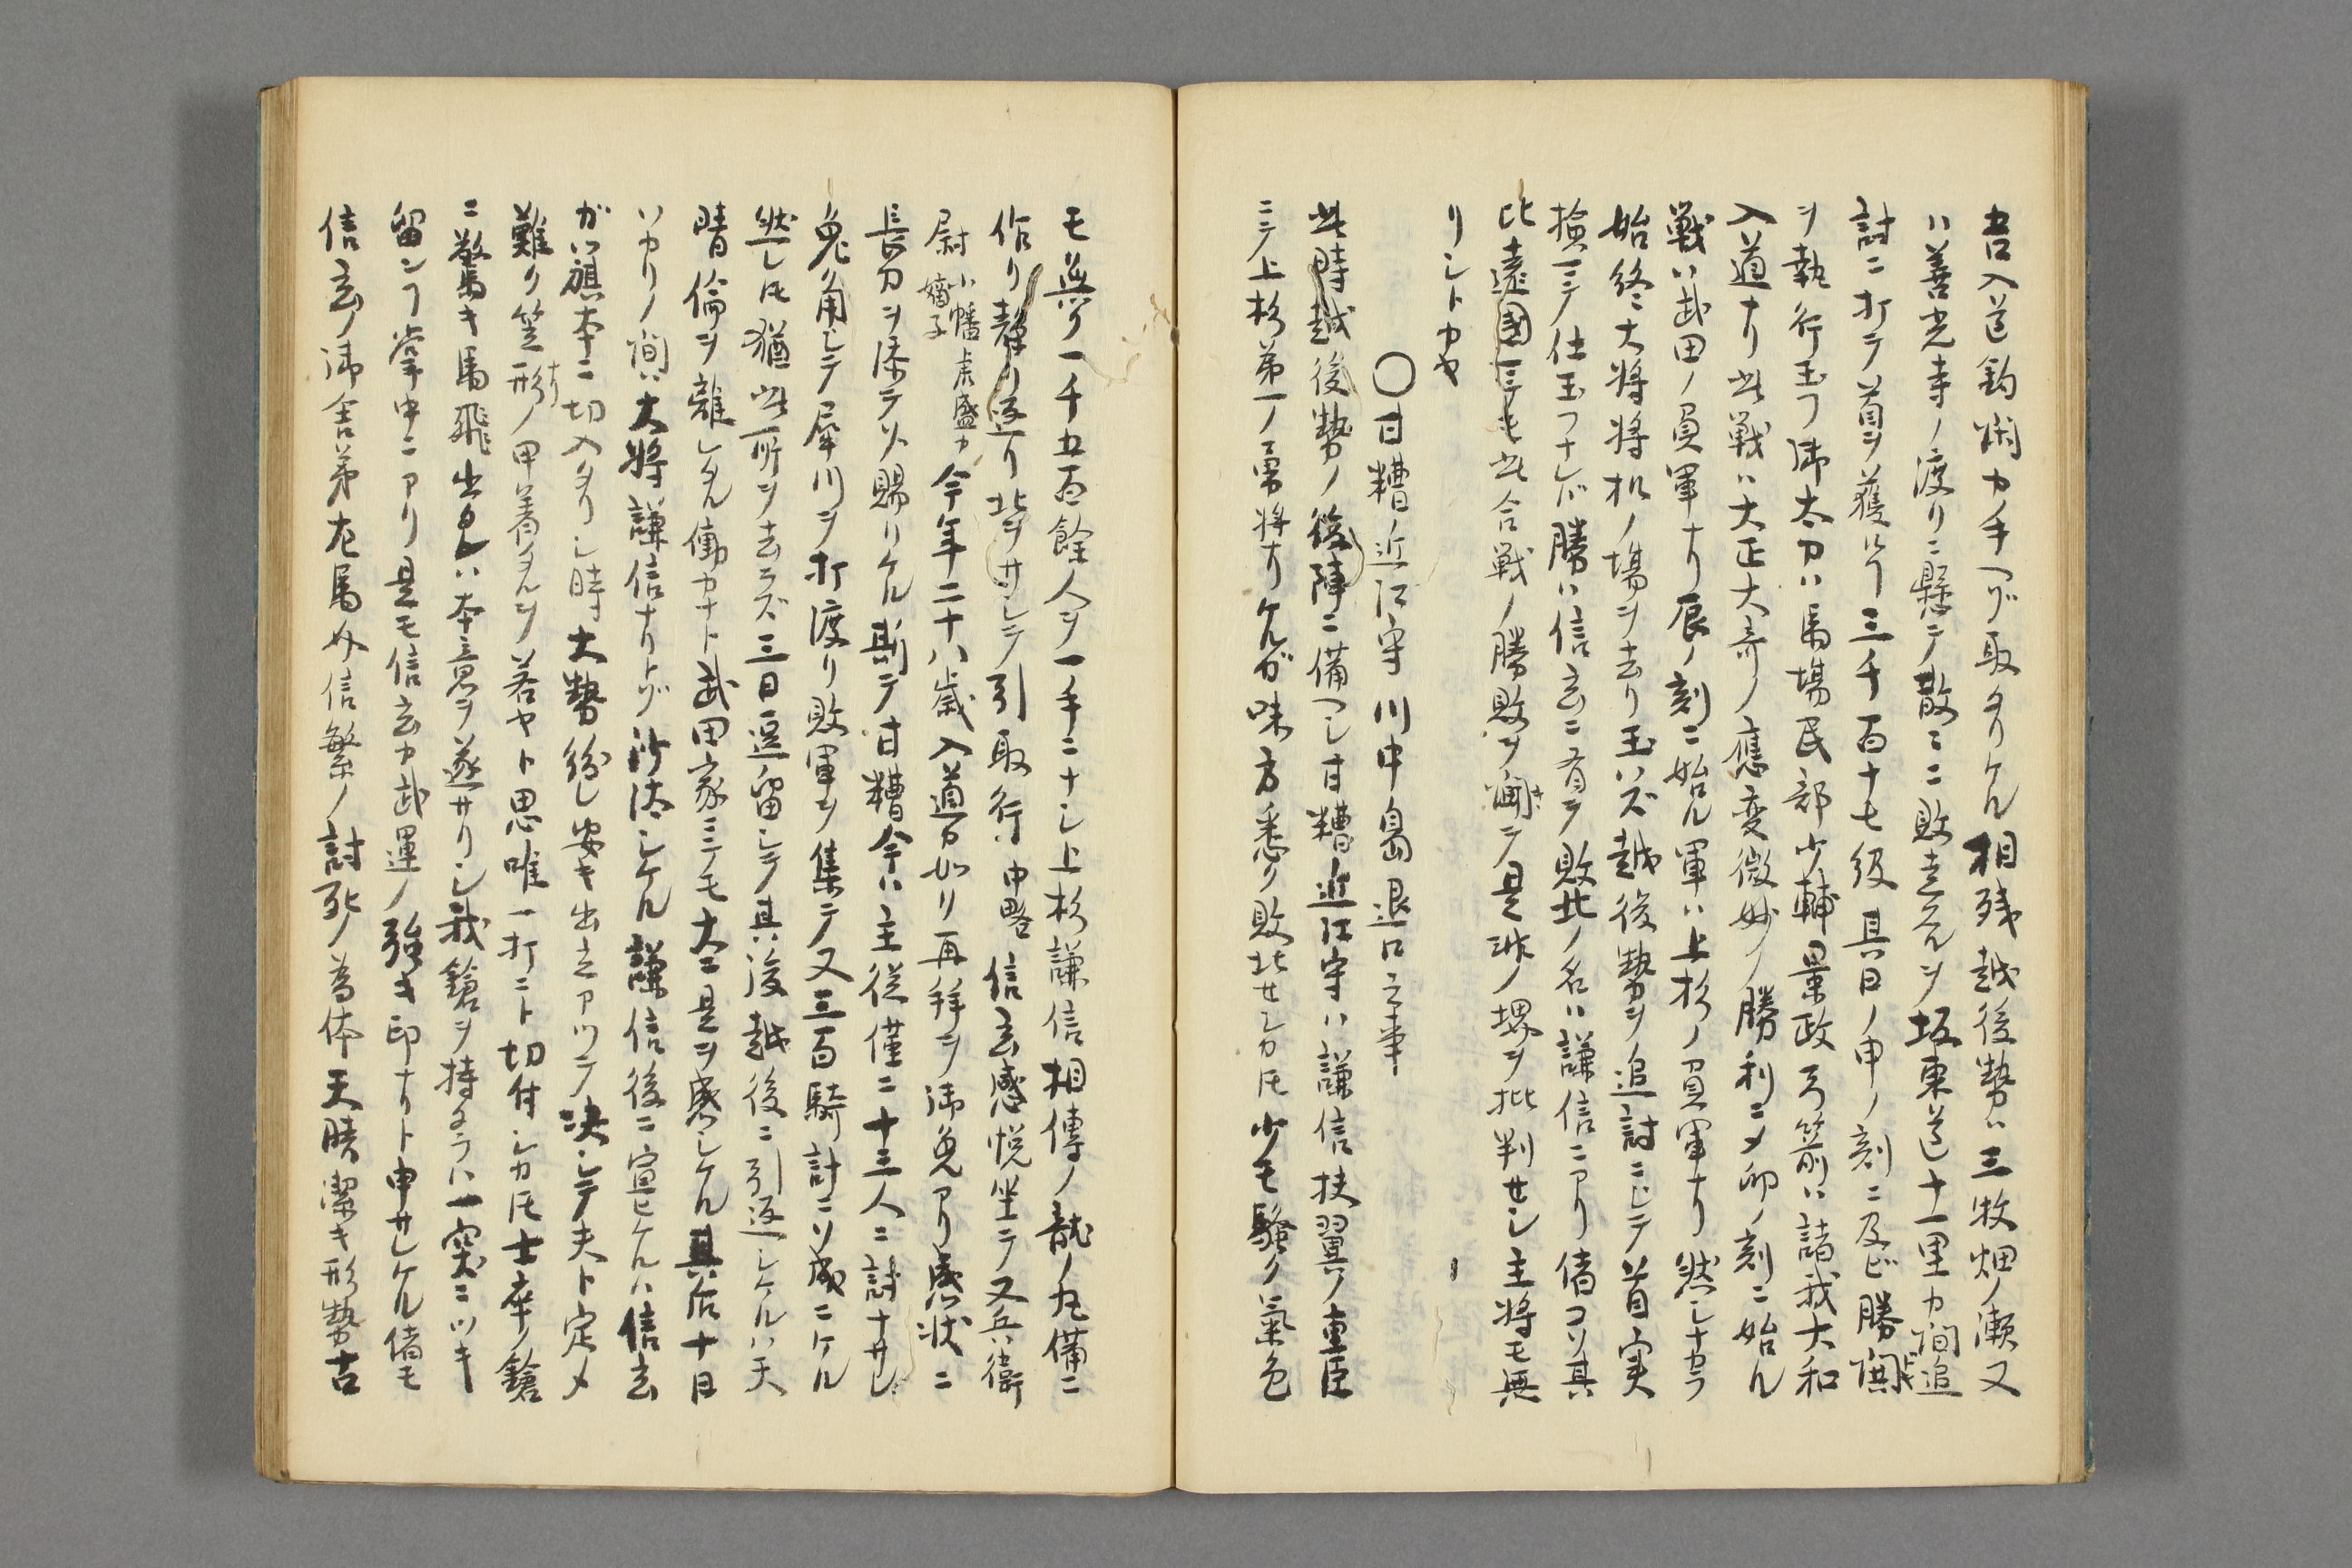 吉入道釣閑カ手ヘゾ取タリケル相残越後勢ハ三牧畑ノ瀬又
ハ善光寺ノ渡リニ懸テ散〻ニ敗走スルヲ坂東道十一里カ間追
討ニ打テ首ヲ獲ル丁三千百十七級其日ノ申ノ刻ニ及ビ勝閧
ヲ執行玉フ御太刀ハ馬場民部少輔景政弓箭ハ諸我大和
入道ナリ此戦ハ大正大奇ノ應変微妙ノ勝利ニメ卯ノ刻ニ始ル
戦ハ武田ノ負軍ナリ辰ノ刻ニ始ル軍ハ上杉ノ負軍ナリ然シナカラ
始終ニ大将将机ノ場ヲ去リ玉ハズ越後勢ヲ追討ニシテ首実
撿ニテ仕玉フナレバ勝ハ信玄ニ有テ敗北ノ名ハ謙信ニアリ偖コソ其
比遠國ニテモ此合戦ノ勝敗ヲ聞テ是非ノ堺ヲ批判セシ主将モ無
リシトカヤ
〇甘糟近江守川中島退口之事
此時越後勢ノ後陣ニ備ヘシ甘糟近江守ハ謙信扶翼ノ重臣
ニテ上杉第一ノ勇将ナリケルガ味方悉ク敗北セシカ𪜈少モ騒ク氣色
モ無ク一千五百餘人ヲ一手ニナシ上杉謙信相傳ノ龍ノ丸備ニ
作リ静リ返リ北ヲサシテ引取行中略信玄感悦坐テ又兵衛
尉小幡虎盛カ嫡子今年二十八歳入道万如リ再拜ヲ御免アリ感状ニ
長刀ヲ添テソ賜リケル斯テ甘糟今ハ主従僅ニ十三人ニ討ナサレ
兔角シテ犀川ヲ打渡リ敗軍ヲ集テ又三百騎計ニソ成ニケル
然レ𪜈猶此所ヲ去ラズ三日逗留シテ其後越後ニ引返シケルハ天
晴倫ヲ離レタル働カナト武田家ニテモ大ニ是ヲ感シケル其后十日
ハカリノ間ハ大将謙信ナリトゾ沙汰シケル謙信後ニ宣ヒケルハ信玄
ガ旗本ニ切入タリシ時大勢紛レ安キ出立アツテ決シテ夫ト定メ
難ク笠形ノ甲着タルヲ若ヤト思唯一打ニト切付シカ𪜈士卒ノ鎗
ニ驚キ馬飛出タレハ本意ヲ遂サリシ我鎗ヲ持タラハ一突ニツキ
留ンヿ掌中ニアリ是モ信玄カ武運ノ強キ印ナリト申サレケル偖モ
信玄ノ御舎弟左馬介信繁ノ討死ノ為体天晴潔キ形勢古